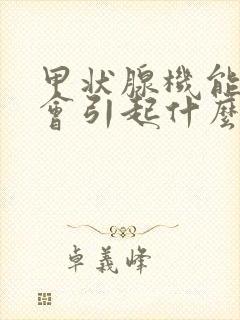 甲狀腺機能
會引起什麼
卓義峰